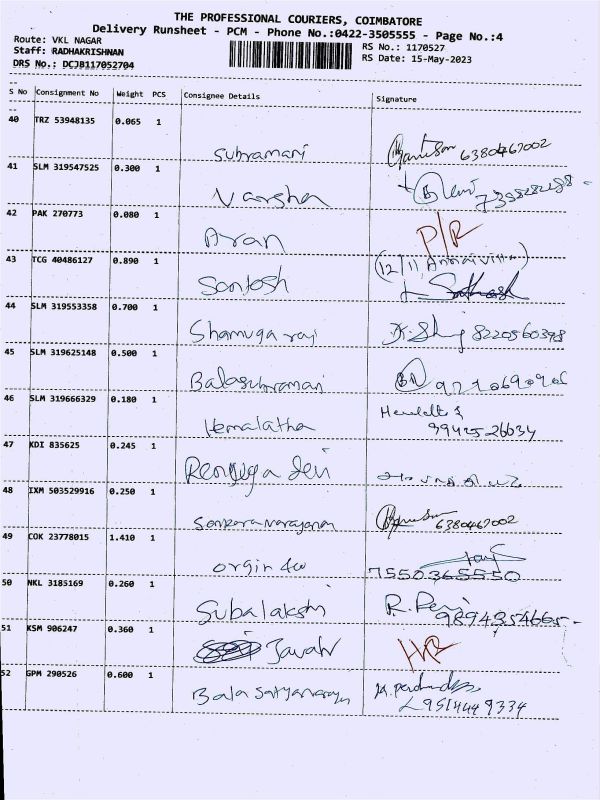 THE PROFESSIONAL COURIERS, COIMBATORE
Delivery Runsheet - PCM - Phone No.:0422-3505555 - Page No.:4
Route: VKL NAGAR
Staff: RADHAKRISHNAN
DRS No.: DCJB117052704
RS No.: 1170527
RS Date: 15-May-2023
S No Consignment No Weight PCS Consignee Details Signature
40 TRZ 53948135 0.065 1
Subramani 6380467002
41 SLM 319547525 0.300 1
Varsha
42 PAK 270773 0.080 1
Aran P/R
43 TCG 40486127 0.890 1
Santosh
44 SLM 319553358 0.700 1
Shamugaraj 8220560398
45 SLM 319625148 0.500 1
Balasubramani
46 SLM 319666329 0.180 1
Hemalatha
99425 26034
47 KDI 835625 0.245 1
Renjuga Devi
48 IXM 503529916 0.250 1
Sankaranarayanan 6380467002
49 COK 23778015 1.410 1
7550365550
50 NKL 3185169 0.260 1
Subalakshi 9894354665
51 KSM 906247 0.360 1
52 GPM 290526 0.600 1
Bala Satyanarayn
9514449334